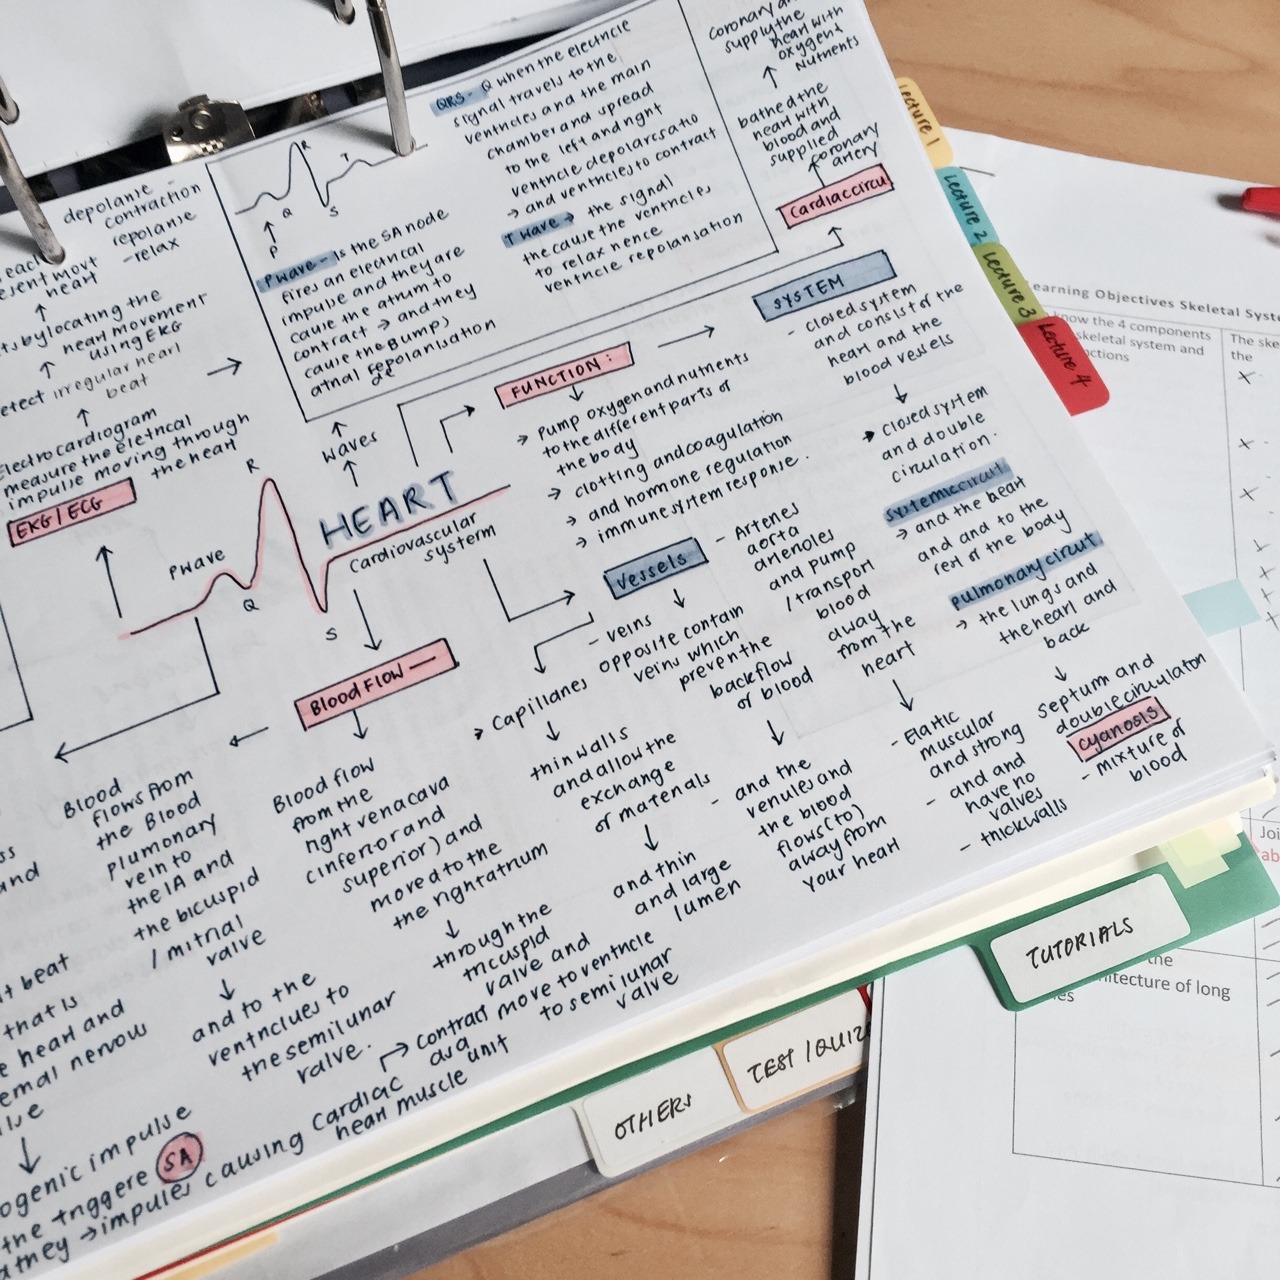 depolarise -
contraction
repolarise
- relax
heart
by locating the
heart movement
using EKG
irregular heart
beat
Electrocardiogram
measure the eletrical
impulse moving through
the heart
EKG / ECG
R
T
Q
S
P
P wave - is the SA node
fires an electrical
impulse and they are
cause the atrium to
contract → and they
cause the Bump)
atrial depolarisation
QRS - Q when the eleuncle
signal travels to the
ventricles and the main
chamber and spread
to the left and right
ventricle depolarisatio
→ and ventricles to contract
T wave → the signal
the cause the ventricles
to relax hence
ventricle repolarisation
coronary
supply the
heart with
oxygent
Nutrients
bathed the
heart with
blood and
supplied
coronary
artery
Cardiac circu
SYSTEM
- closed system
and consist of the
heart and the
blood vessels
→ closed system
and double
circulation.
systemic circuit
→ and the heart
and and to the
rest of the body
pulmonary circut
→ the lungs and
the hearl and
back
septum and
double circulation
cyanosis
- mixture of
blood
FUNCTION :
→ Pump oxygen and nutrients
to the different parts of
the body
→ clotting and coagulation
→ and hormone regulation
→ immune system response.
waves
HEART
Cardiovascular
systerm
R
P wave
Q
S
Vessels
- Arteries
aorta
arterioles
and pump
/ transport
blood
away
from the
heart
- Elastic
muscular
and strong
- and and
have no
valves
- thick walls
- veins
opposite contain
veins which
prevent the
backflow
of blood
- and the
venules and
the blood
flows (to)
away from
your heart
→ Capillaries
thin walls
and allow the
exchange
of materials
and thin
and large
lumen
Blood FLOW —
Blood flow
from the
right vena cava
(inferior and
superior) and
moved to the
the right atrium
through the
tricuspid
valve and
move to ventricle
to semilunar
valve
Blood
flows from
the Blood
plumonary
vein to
the LA and
the bicuspid
/ mitrial
valve
and to the
ventriclues to
the semilunar
valve.
contract
as a
unit
beat
that is
heart and
nervous
ogenic impulse
the triggere SA
they → impules causing cardiac
heart muscle
Lecture 1
Lecture 2
Lecture 3
Lecture 4
TUTORIALS
TEST / QUIZ
OTHERS
earning Objectives Skeletal Syste
know the 4 components
skeletal system and
ctions
The ske
the
Joi
ab
the
itecture of long
es